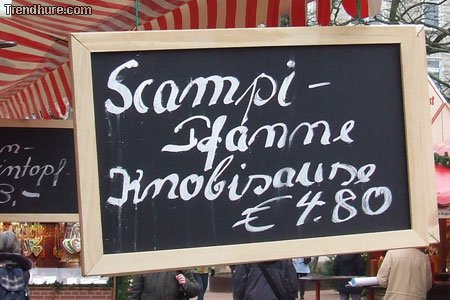 Trendhure.com
Scampi-
Pfanne
Knobisauce
€ 4.80
intopf